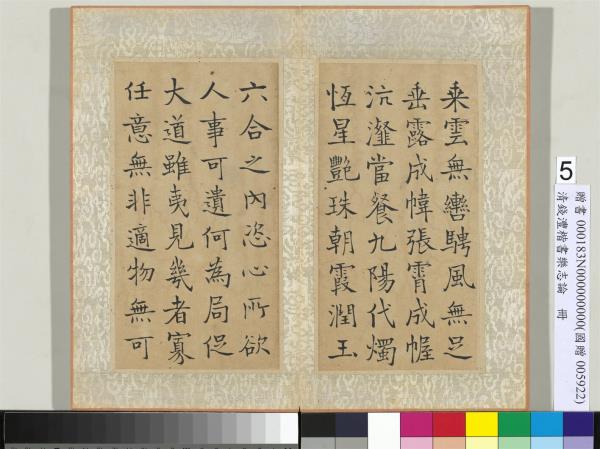 乘雲無轡騁風無足
垂露成幃張霄成幄
沆瀣當餐九陽代燭
恆星艷珠朝霞潤玉
六合之內恣心所欲
人事可遺何為局促
大道雖夷見幾者寡
任意無非適物無可
5
贈書 000183N000000000(國贈 005922)
清錢澧楷書樂志論 冊